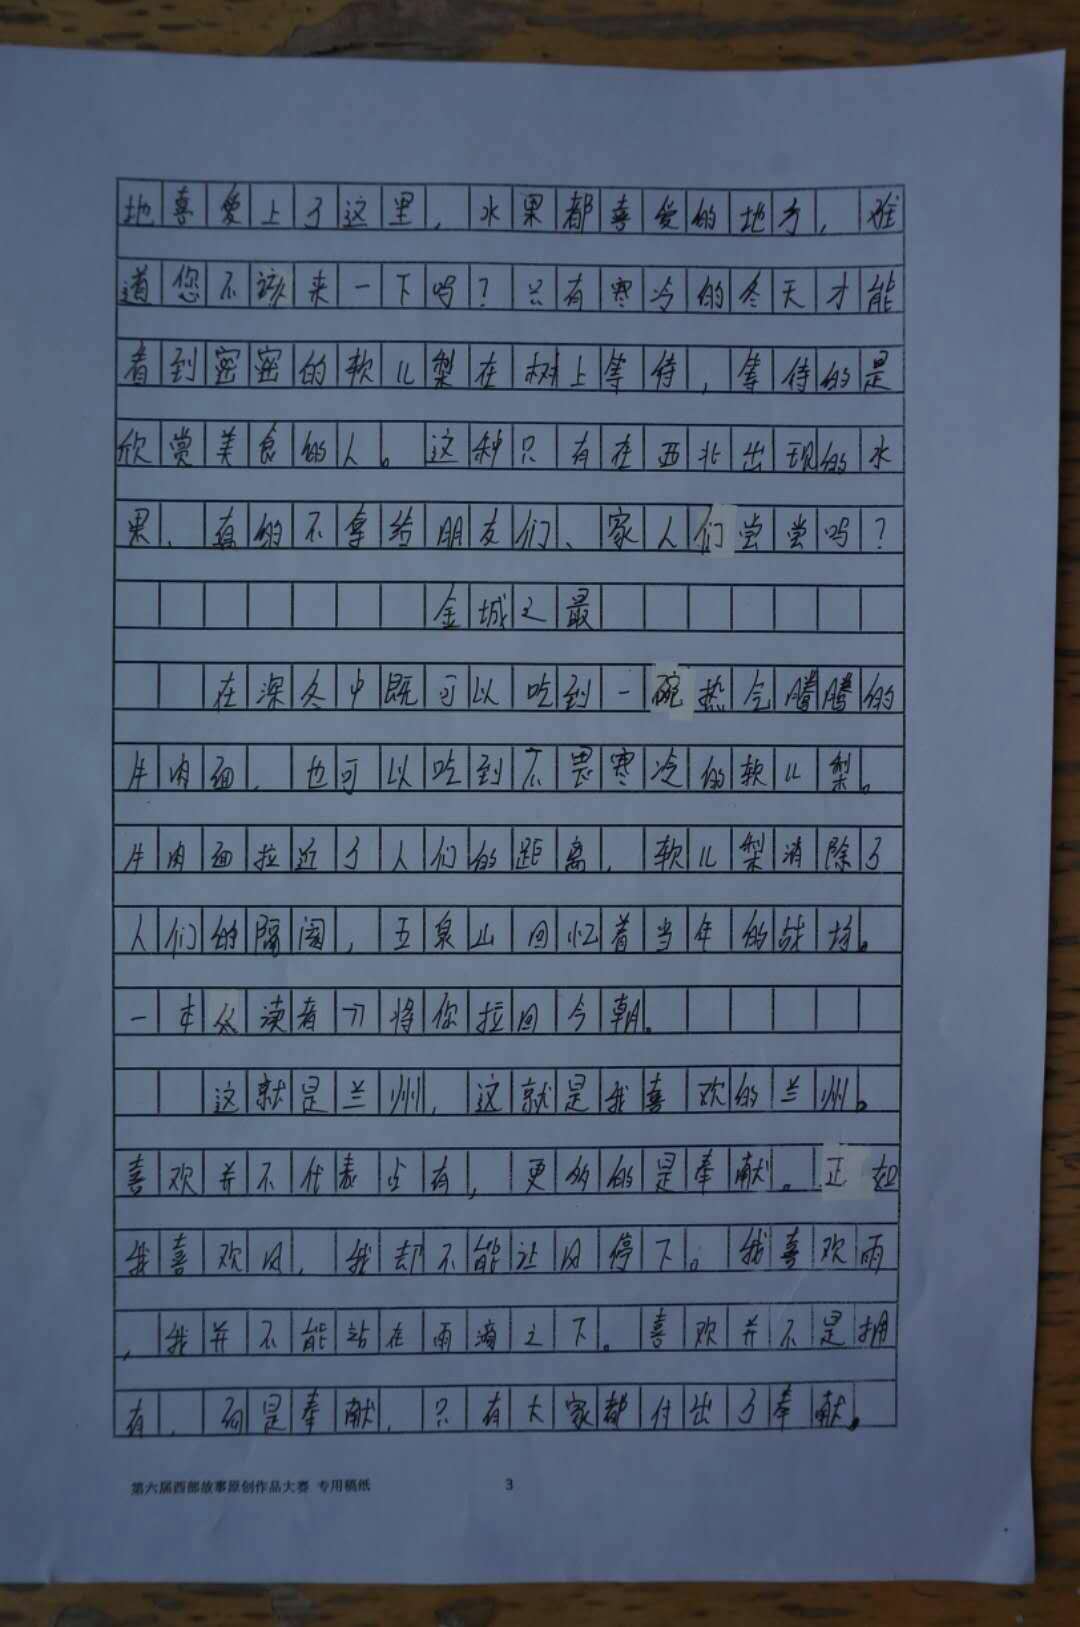 地喜爱上了这里，水果都喜爱的地方，难
道您不该来一下吗？只有寒冷的冬天才能
看到密密的软儿梨在树上等待，等待的是
欣赏美食的人。这种只有在西北出现的水
果，真的不拿给朋友们、家人们尝尝吗？
金城之最
在深冬中既可以吃到一碗热气腾腾的
牛肉面，也可以吃到不畏寒冷的软儿梨。
牛肉面拉近了人们的距离，软儿梨消除了
人们的隔阂，五泉山回忆着当年的战场。
一本《读者》将你拉回今朝。
这就是兰州，这就是我喜欢的兰州。
喜欢并不代表占有，更多的是奉献。正如
我喜欢风，我却不能让风停下。我喜欢雨
，我并不能站在雨滴之下。喜欢并不是拥
有，而是奉献，只有大家都付出了奉献。
第六届西部故事原创作品大赛 专用稿纸 3